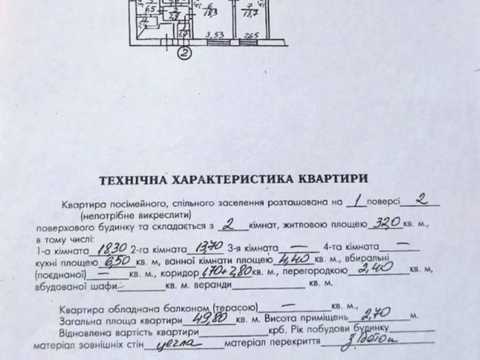 6,5
6
18,3
7
13,7
3,53
2,65
2
ТЕХНІЧНА ХАРАКТЕРИСТИКА КВАРТИРИ
Квартира посімейного, спільного заселення розташована на 1 поверсі 2
(непотрібне викреслити)
поверхового будинку та складається з 2 кімнат, житловою площею 32,0 кв. м.,
в тому числі:
1-а кімната 18,30 2-га кімната 13,70 3-я кімната — 4-та кімната —
кухні площею 6,50 кв. м, ванної кімнати площею 4,40 кв. м., вбиральні
(поєднаної) — кв. м., коридор 1,70+2,80 кв. м., перегородкою 2,40 кв. м.,
вбудованої шафи кв. м. веранди кв. м.
Квартира обладнана балконом (терасою) — кв. м.
Загальна площа квартири 49,80 кв. м. Висота приміщень 2,70 м.
Відновлена вартість квартири крб. Рік побудови будинку
матеріал зовнішніх стін цегла матеріал перекриття з/бетон